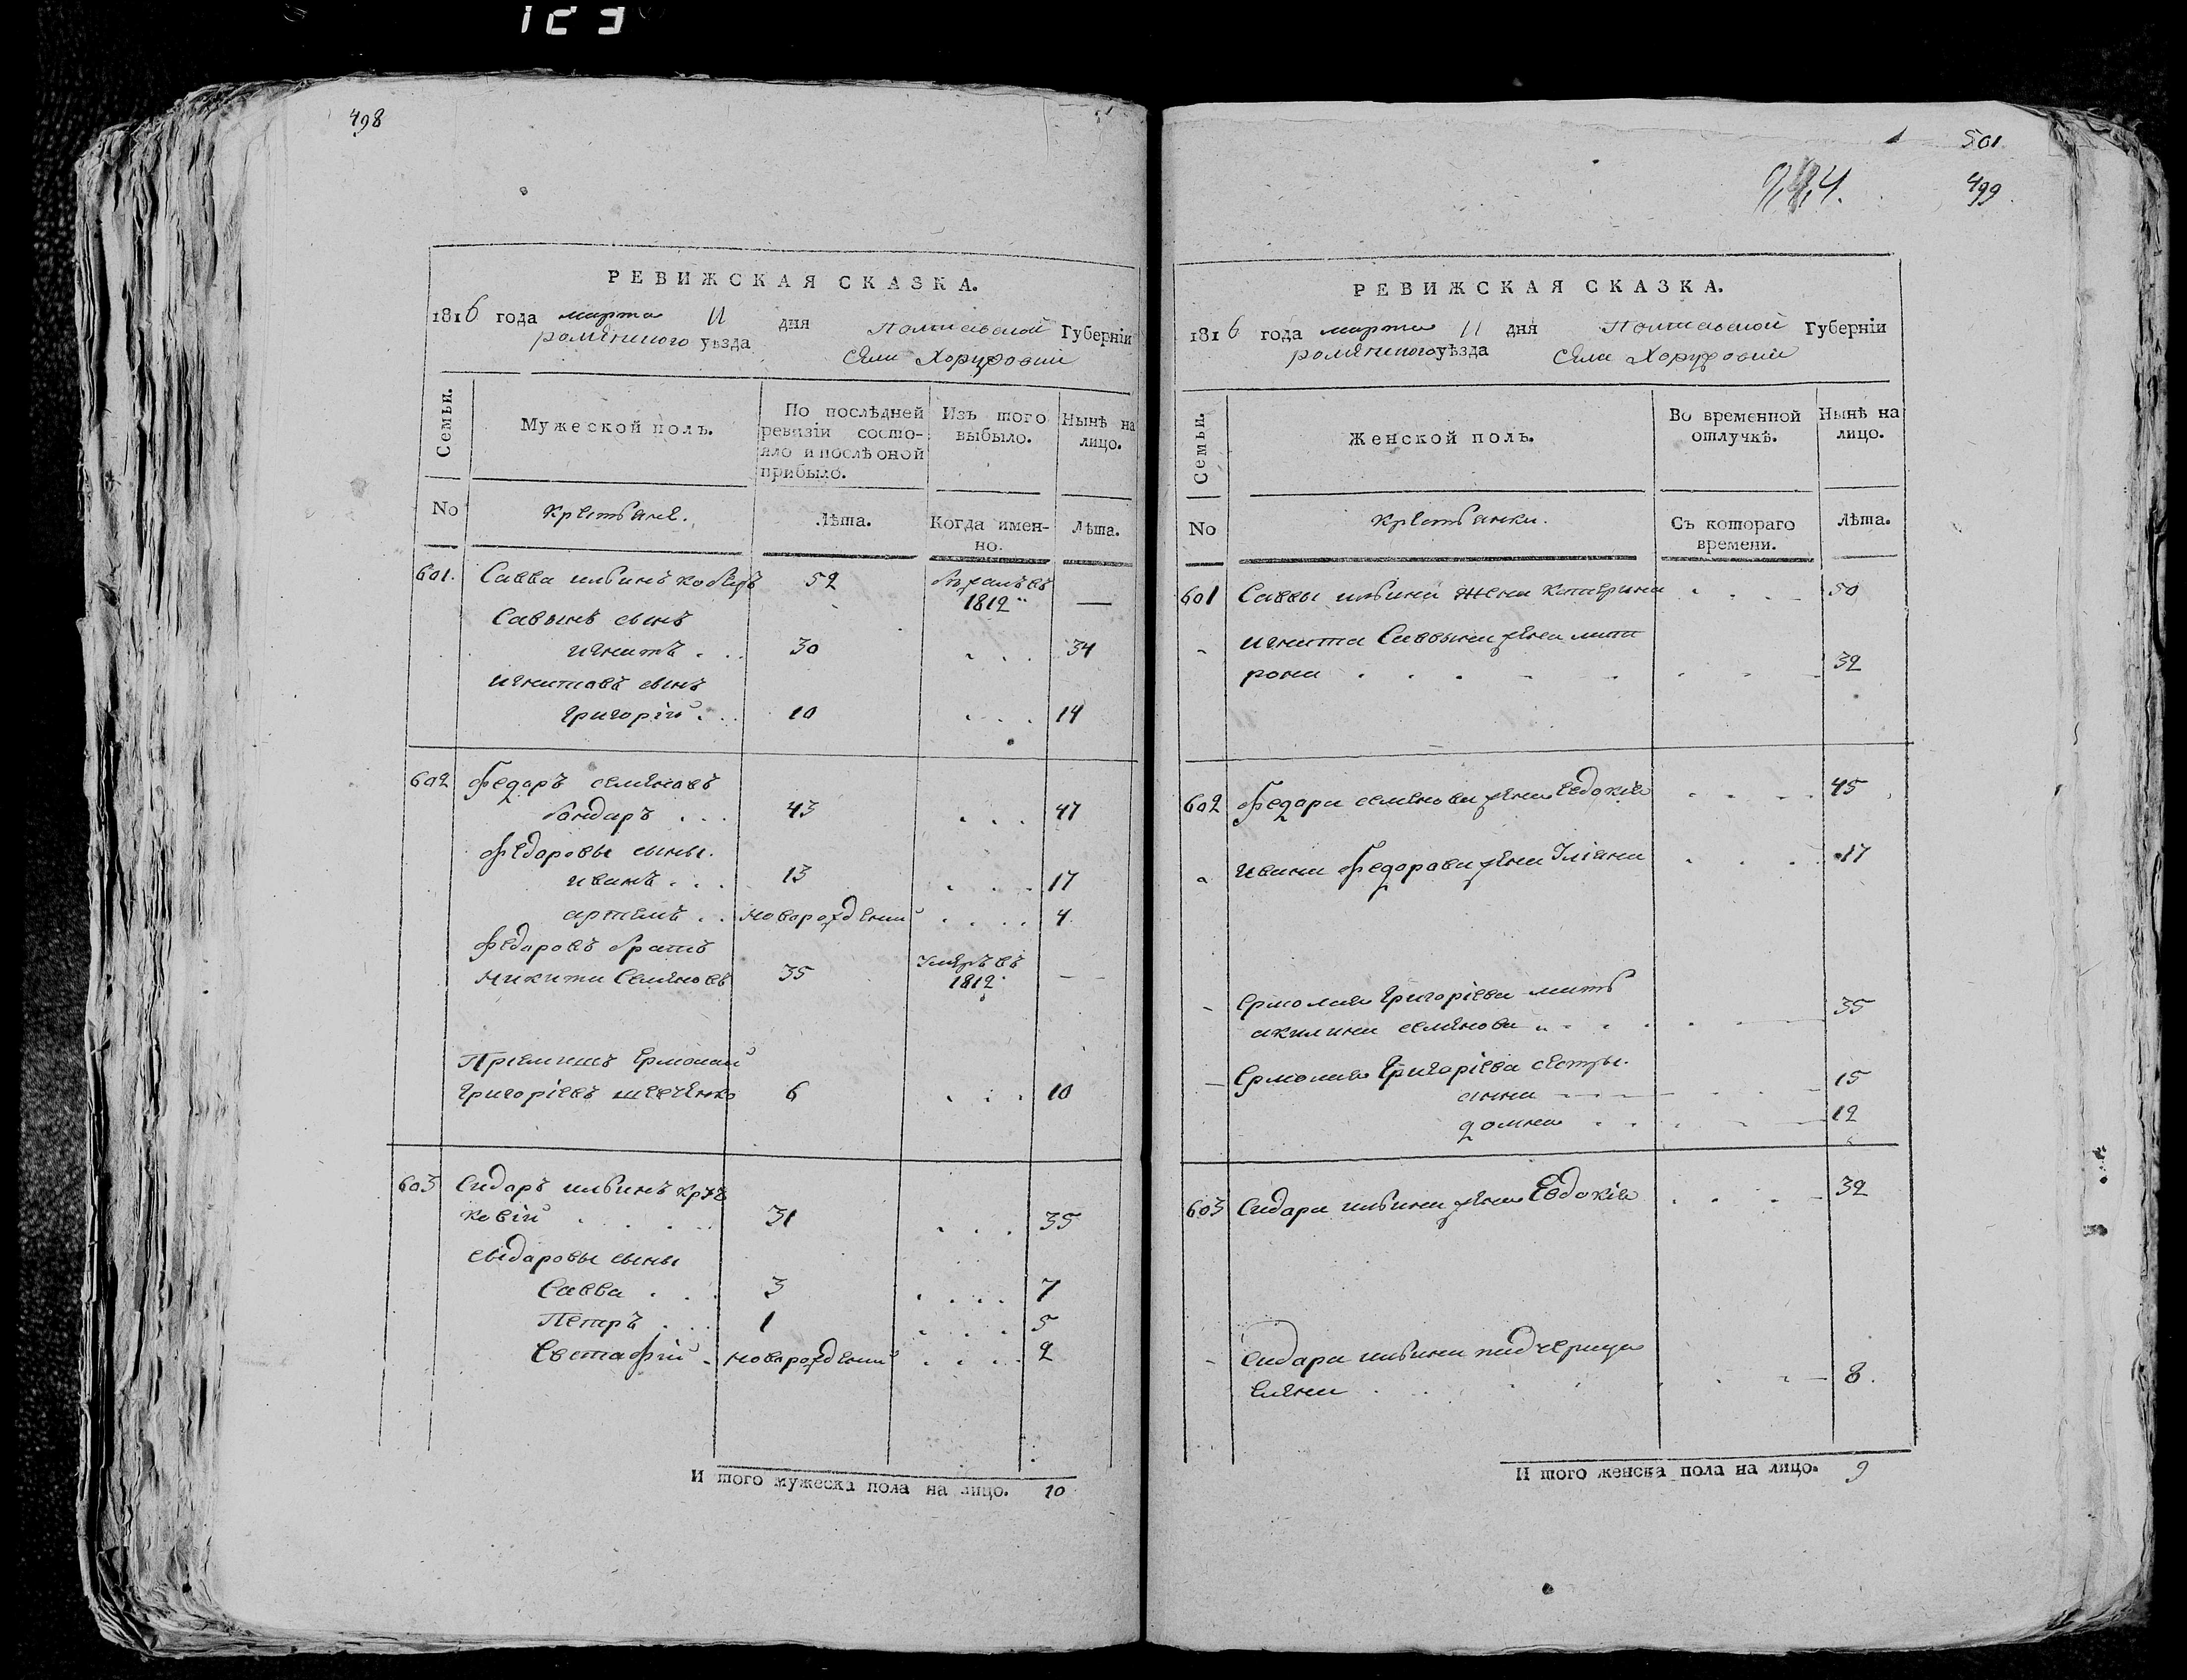 498
РЕВИЖСКАЯ СКАЗКА.
1816 года марта 11 дня Полтавской Губернiи
роменского уѣзда села Хоружовки
Семьи. Мужеской полъ. По послѣдней ревизiи состо-яло и послѣ оной прибыло. Изъ того выбыло. Нынѣ на лицо.
No Крестьяне. Лѣта. Когда имен-но. Лѣта.
601. Савва ильинъ 52 въ
1812 —
Савынъ сынъ
игнатъ . . . 30 . . . 34
игнатовъ сынъ
григорiй . . . 10 . . . 14
602 Федаръ семеновъ
бондаръ . . . 43 . . . 47
Федоровы сыны.
иванъ . . . 13 . . . 17
артемъ . . новорожденний . . . . 4
Федаровъ братъ умеръ въ
Микита Семеновъ 35 1812 —
Прiемишъ Ермолай
Григорiевъ шевченко 6 . . . 10
603 Сидаръ ильинъ
ковiй . . . . 31 . . . 35
сыдаровы сыны
Савва . . . 3 . . . . 7
Петръ . . . 1 . . . . 5
Евстафiй . новорожденний . . . . 2
И того мужеска пола на лицо. 10
501
499
РЕВИЖСКАЯ СКАЗКА.
1816 года марта 11 дня Полтавской Губернiи
роменского уѣзда села Хоружовки
Семьи. Женской полъ. Во временной отлучкѣ. Нынѣ на лицо.
No Крестьянки. Съ котораго времени. Лѣта.
601 Саввы ильина жена катерина . . . 50
игната Саввина жена мат
рона . . . . . . . . 32
602 Федора семенова жена Евдокiя . . . . 45
ивана Федорова жена Улiяна . . . . 17
Ермолая григорiева мать
акилина семенова . . . . . . . 35
— Ермолая Григорiева сестры.
анна . . . . 15
домна . . . . 12
603 Сидара ильина жена Евдокiя . . . . 32
Сидара ильина падчерица
елена . . . . . . . 8.
И того женска пола на лицо. 9